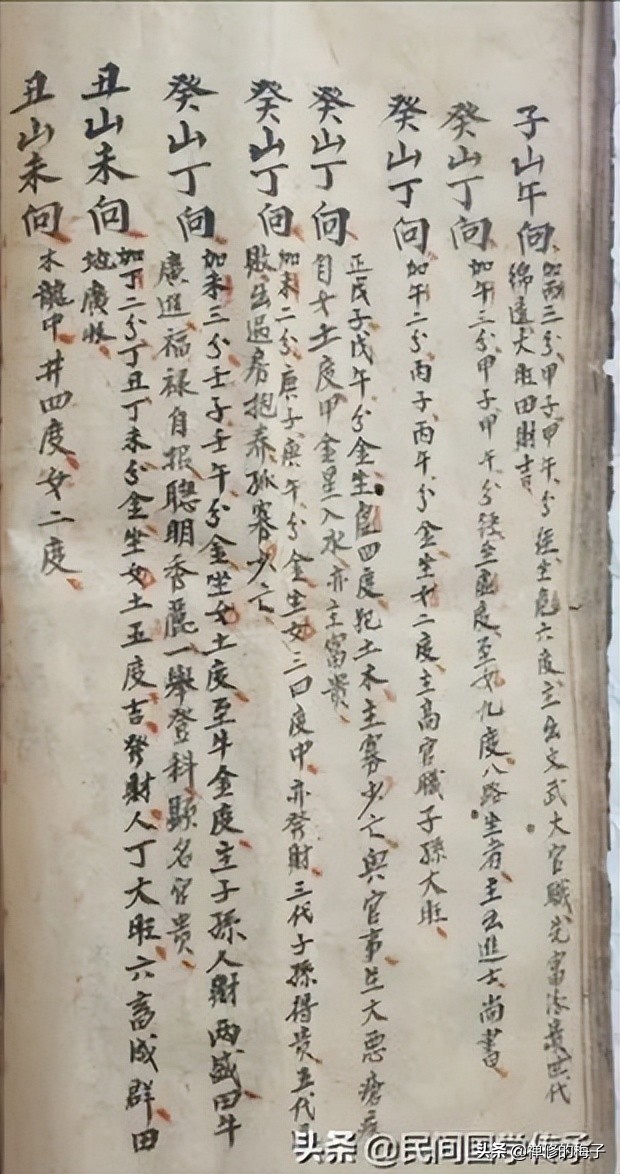 子山午向 加丙三分甲子甲午分经坐危六度主出文武大官职先富后贵世代
绵远大旺田財吉
癸山丁向 加午三分甲子甲午分经坐虚度至女九度八路生者主出進士尚書
癸山丁向 加午二分丙子丙午分金坐女二度主高官職子孫大旺
癸山丁向 正戊子戊午分金坐虚四度犯土木主寡少亡與官事生大惡瘡疾
自女土度甲金星入水亦主富貴
癸山丁向 加未二分庚子庚午分金坐女三四度中亦發財三代子孫得貴五代
敗出過房抱养孤寡少亡
癸山丁向 加未三分壬子壬午分金坐女土度至牛金度主子孫人財兩盛田牛
廣進福禄自招聰明秀麗一舉登科顯名官贵
丑山未向 加丁二分丁丑丁未分金坐女土五度吉發財人丁大旺六畜成群田
地廣收
丑山未向 木龍中井四度女二度
头条@民间医学
头条@禅修的梅子